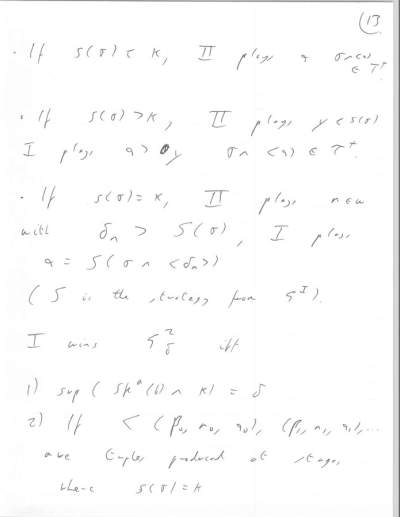 (13
· If s(σ) < κ, II plays a σ⌢<a> ∈ T†.
· If s(σ) > κ, II plays γ < s(σ)
I plays a > γ σ⌢<a> ∈ T†.
· If s(σ) = κ, II plays n ∈ ω
with δₙ > S(σ), I plays
a = S(σ⌢<δₙ>)
(S is the strategy from G^I).
I wins iff
1) sup ( ∩ κ) = δ
2) If <
are tuples produced at stages
where s(σ) = κ